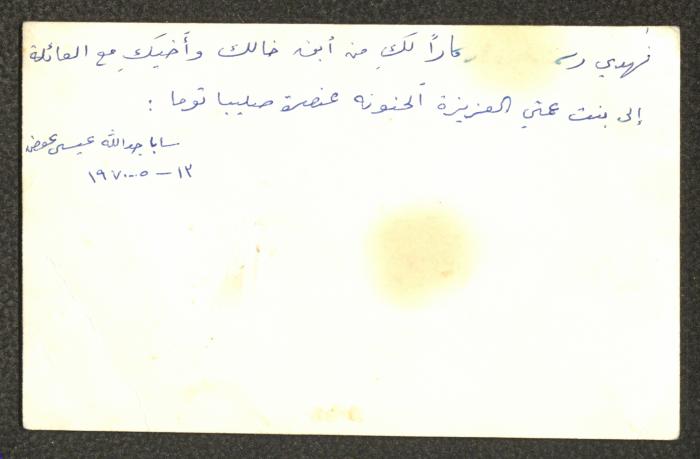 نهدي رسـ كاراً لكِ من ابن خالك وأخيكِ مع العائلة
إلى بنت عمتي العزيزة الحنونه عنصرة صليبا توما :
سابا جدالله عيسى عوض
١٢ - ٥ - ١٩٧٠